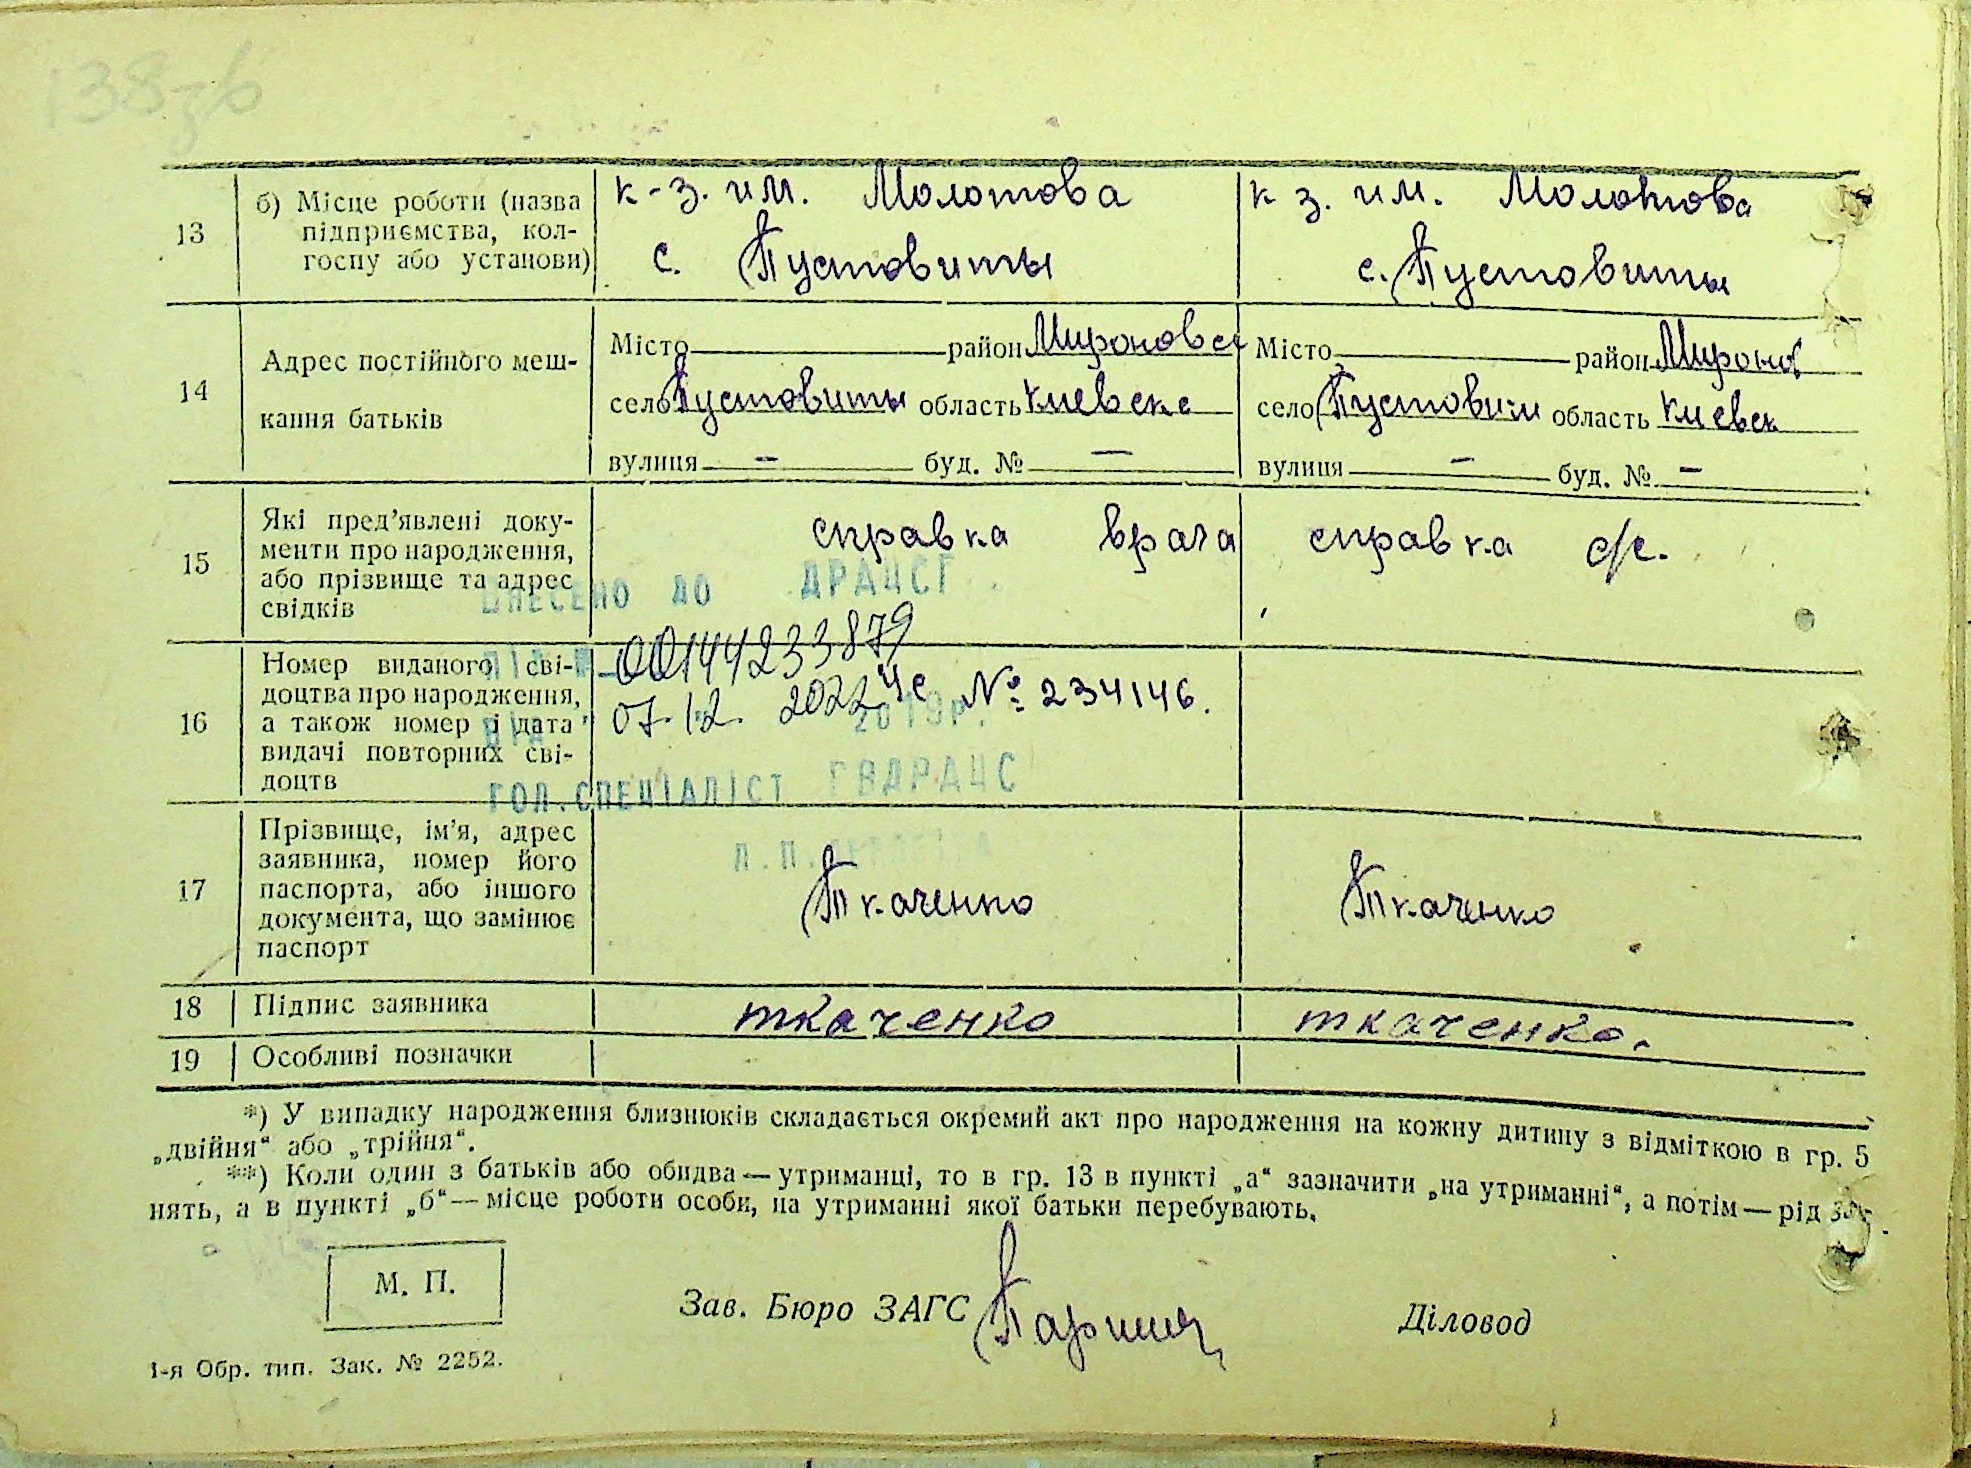 138зв
13
б) Місце роботи (назва
підприємства, кол-
госпу або установи)
к-з. им. Молотова
с. Пустовиты
к з. им. Молотова
с. Пустовиты
14
Адрес постійного меш-
кання батьків
Місто район Мироновск
село Пустовиты область Киевске
вулиця — буд. № —
Місто район Миронов
село Пустовиты область Киевск
вулиця — буд. № —
15
Які пред’явлені доку-
менти про народження,
або прізвище та адрес
свідків
справка врача
справка с/с.
ВНЕСЕНО ДО ДРАЦСГ
16
Номер виданого сві-
доцтва про народження,
а також номер і дата
видачі повторних сві-
доцтв
00144233879
07.12.2022
ЧС № 234146.
2019р.
ГОЛ.СПЕЦІАЛІСТ ГВДРАЦС
Л.П.
17
Прізвище, ім’я, адрес
заявника, номер його
паспорта, або іншого
документа, що замінює
паспорт
Ткаченко
Ткаченко
18
Підпис заявника
ткаченко
ткаченко.
19
Особливі позначки
*) У випадку народження близнюків складається окремий акт про народження на кожну дитину з відміткою в гр. 5
„двійня“ або „трійня“.
**) Коли один з батьків або обидва — утриманці, то в гр. 13 в пункті „а“ зазначити „на утриманні“, а потім — рід за-
нять, а в пункті „б“ — місце роботи особи, на утриманні якої батьки перебувають.
М. П.
Зав. Бюро ЗАГС
Діловод
1-я Обр. тип. Зак. № 2252.